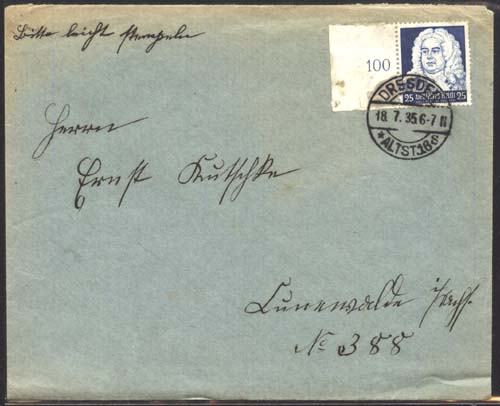 Bitte leicht stempeln
100
25 25
DRESDEN
18.7.35.6-7 N
* ALTST. 16 d
Herrn
Ernst Kutschke
Cunewalde i/Sachs.
No 388